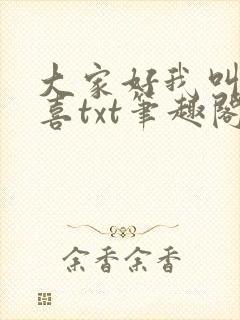 大家好我叫
喜txt笔趣阁
余香余香